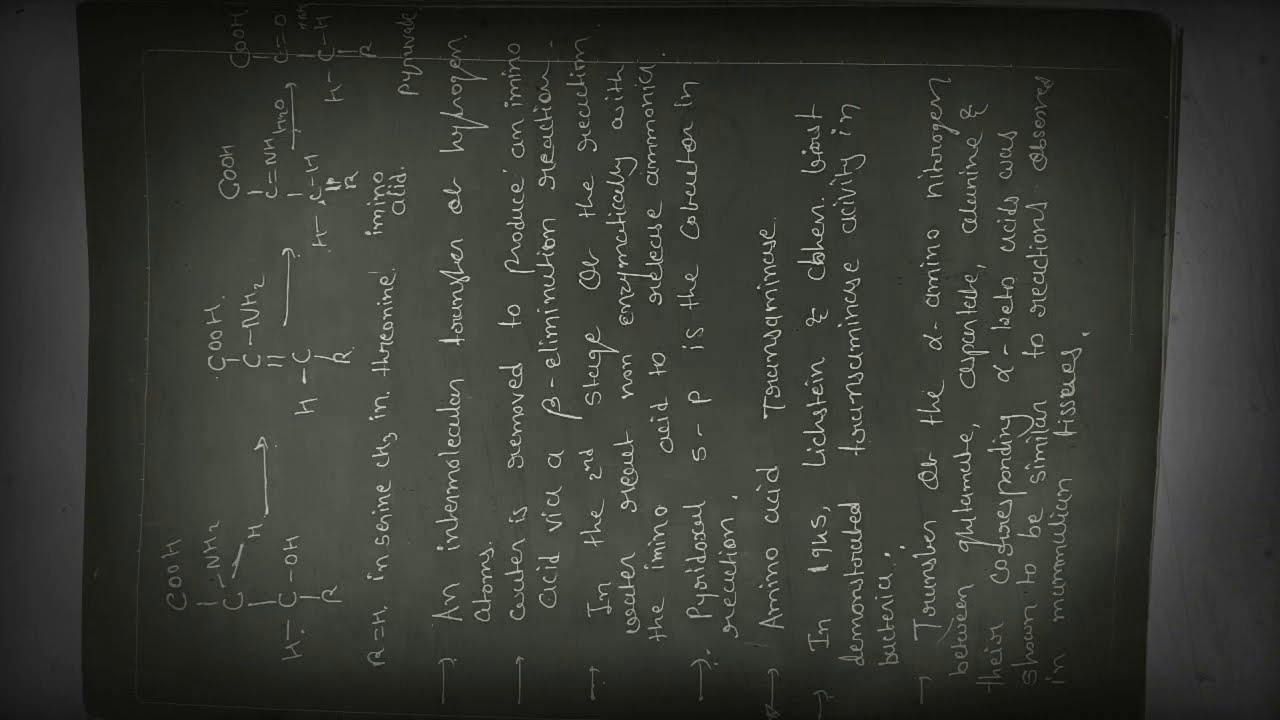 COOH COOH. COOH COOH
C-NH2 C-NH2 C=NH H2O C=O
H
H-C-OH H-C H-C-H H-C-H
R R R R
R=H in serine CH3 in threonine imino acid. Pyruvate
→ An intermolecular transfer of hydrogen atoms.
→ water is removed to produce an imino
acid via a β-elimination reaction.
→ In the 2nd stage of the reaction
water react non enzymatically with
the imino acid to release ammonia.
→ Pyridoxal 5-P is the cofactor in
reaction.
→ Amino acid Transaminase.
→ In 1945, Lichstein & Cohen first
demonstrated transaminase acivity in
bacteria.
→ Transfer of the α-amino nitrogen
between glutamate, aspartate, alanine &
their corresponding α-keto acids was
shown to be similar to reactions observed
in mammalian tissues.